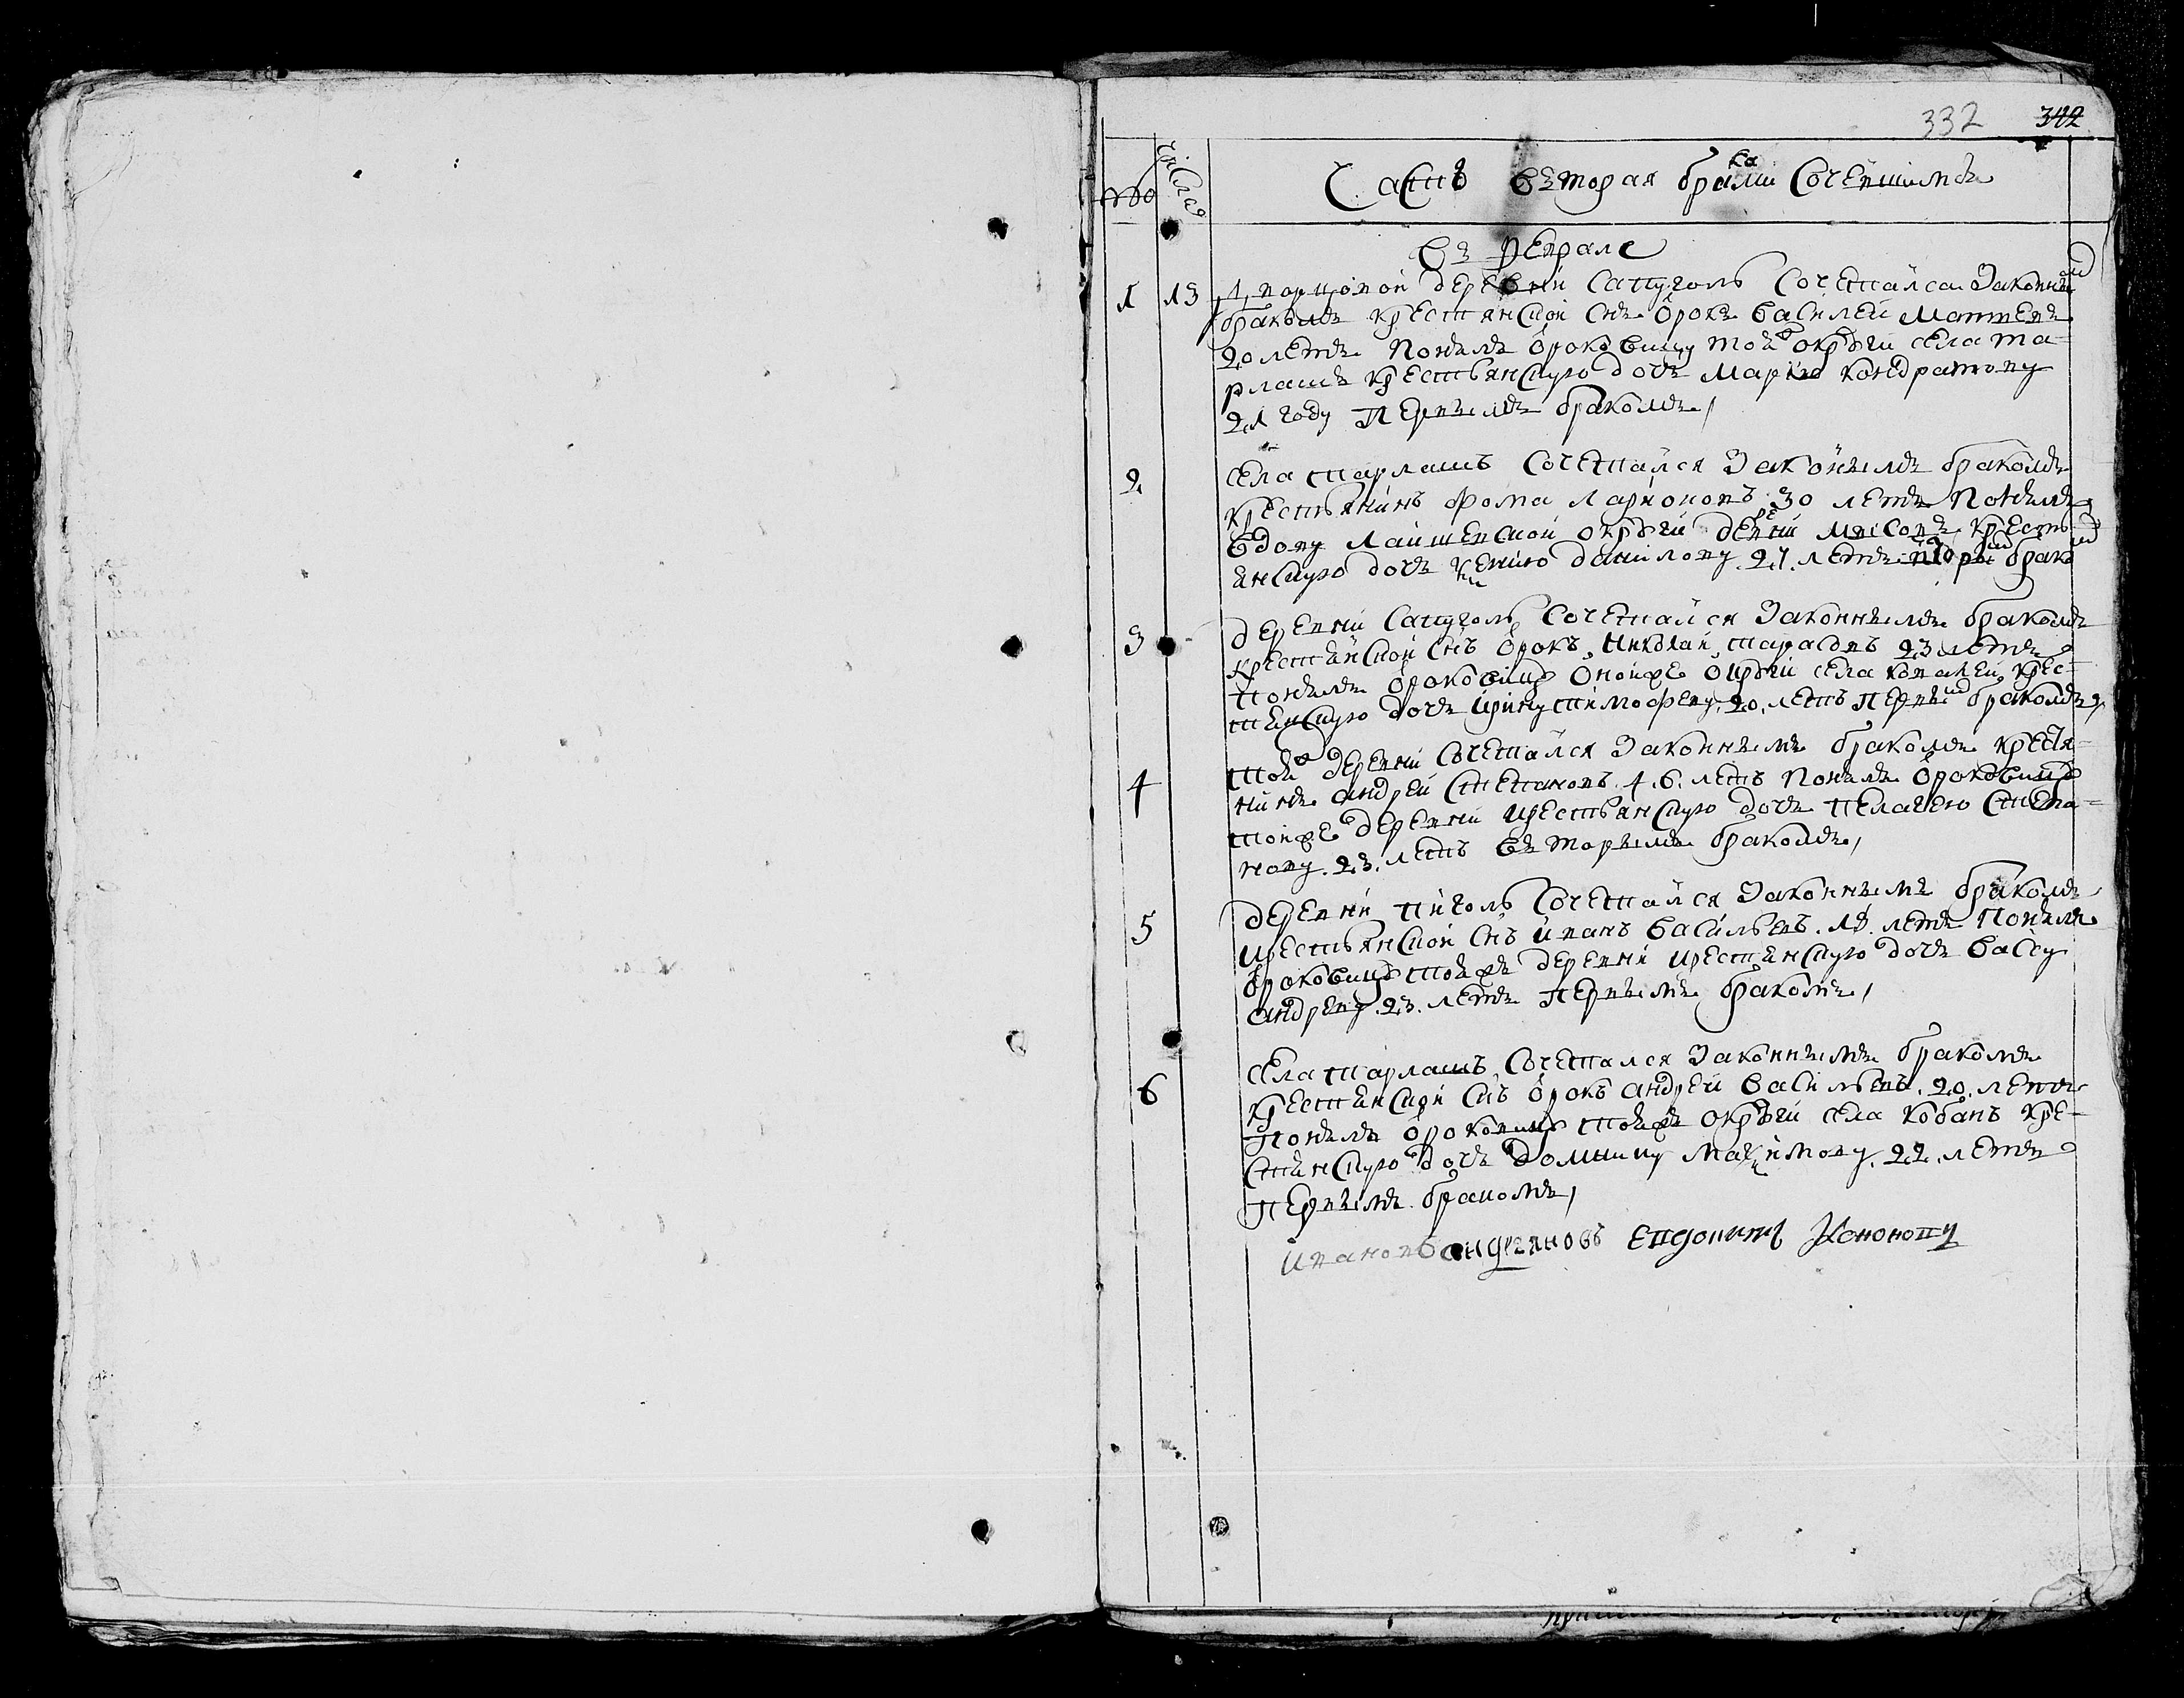 332 342
№ числа Часть вторая браками сочетшимся
въ феврале
1 13 деревни Сатуголь сочетался законным
бракомъ крестьянской снъ отрокъ василей матвеев
20 летъ понялъ отроковицу той округи села та-
рлашъ крестьянскую дочь марию кондратову
21 году первымъ бракомъ,
2 села тарлашъ сочетался законымъ бракомъ
крестьянинъ фома ларионовъ 30 летъ понялъ
вдову лаишевской округи деревни крестъ-
янскую дочь ксению данилову 27 летъ брако
3 деревни Сатуголь сочетался законнымъ бракомъ
крестьянской снъ отрокъ николай тарасовъ 23 летъ
понялъ отроковицу оной же округи села крес-
тьянскую дочь ирину тимофееву 20 летъ первым бракомъ,
4 той деревни сочетался законнымъ бракомъ крестья-
нинъ андрей степановъ 46 летъ понялъ отроковицу
той же деревни крестьянскую дочь пелагею степа-
нову 23 летъ вторымъ бракомъ,
5 деревни пиголь сочетался законнымъ бракомъ
крестьянской снъ иванъ васильевъ 18 летъ понялъ
отроковицу той же деревни крестьянскую дочь вассу
андрееву 23 летъ первымъ бракомъ,
6 села тарлашъ сочетался законнымъ бракомъ
крестьянской снъ отрокъ андрей васильевъ 20 летъ
понялъ отроковицу той же округи села кобанъ кре-
стьянскую дочь домнину максимову 22 летъ
первымъ бракомъ,
ивановъ андреяновъ